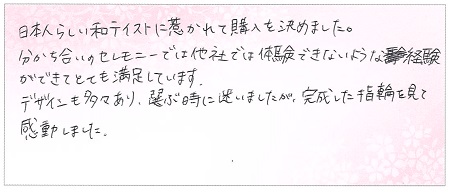 日本人らしい和テイストに惹かれて購入を決めました。
分かち合いのセレモニーでは他社では体験できないような経験
ができてとても満足しています。
デザインも多々あり、選ぶ時に迷いましたが、完成した指輪を見て
感動しました。